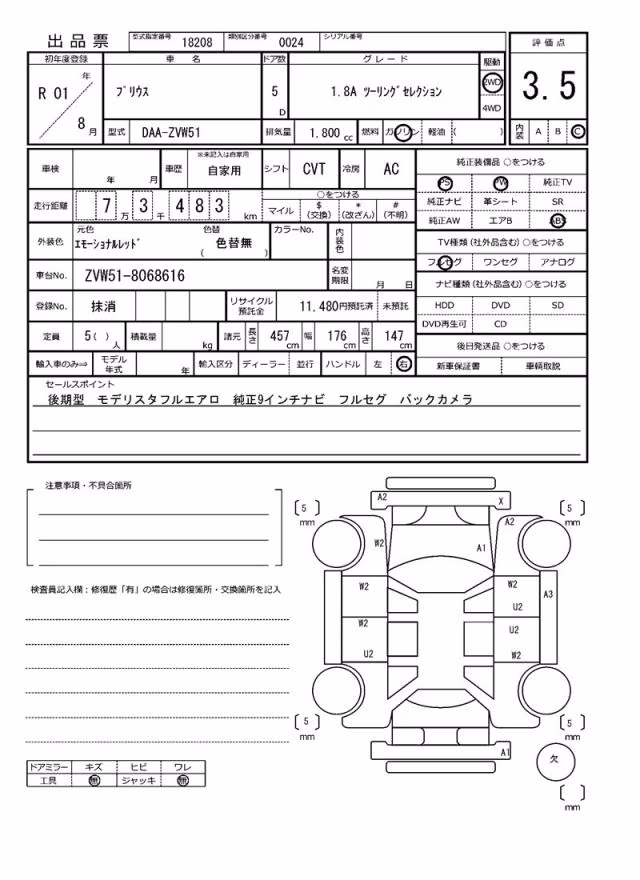 出品票 型式指定番号 18208 類別区分番号 0024 シリアル番号
評価点
3.5
内装 A B C
初年度登録 車名 ドア数 グレード 駆動
R 01 年 8 月 プリウス 5 D 1.8A ツーリングセレクション 2WD 4WD
型式 DAA-ZVW51 排気量 1.800 cc 燃料 ガソリン 軽油 ( )
車検 年 月 車歴 ※未記入は自家用 自家用 シフト CVT 冷房 AC
走行距離 7 万 3 千 4 8 3 km ○をつける
マイル $ (交換) * (改ざん) # (不明)
外装色 元色 エモーショナルレッド 色替 ( 色替無 ) カラーNo. 内装色
車台No. ZVW51-8068616 名変期限 月 日
登録No. 抹消 リサイクル預託金 11.480円預託済 未預託
定員 5( ) 人 積載量 kg 諸元 長さ 457 cm 幅 176 cm 高さ 147 cm
輸入車のみ⇒ モデル年式 年 輸入区分 ディーラー 並行 ハンドル 左 右
純正装備品 ○をつける
PS PW 純正TV
純正ナビ 革シート SR
純正AW エアB ABS
TV種類 (社外品含む) ○をつける
フルセグ ワンセグ アナログ
ナビ種類 (社外品含む) ○をつける
HDD DVD SD
DVD再生可 CD
後日発送品 ○をつける
新車保証書 車輌取説
セールスポイント
後期型 モデリスタフルエアロ 純正9インチナビ フルセグ バックカメラ
注意事項・不具合箇所
検査員記入欄:修復歴「有」の場合は修復箇所・交換箇所を記入
ドアミラー キズ ヒビ ワレ
工具 無 ジャッキ 無
A2 X
5 mm
5 mm
A2
W2 A1
W2 W2 A3
U2
W2 U2
U2 W2
5 mm
5 mm
A1
欠
mm